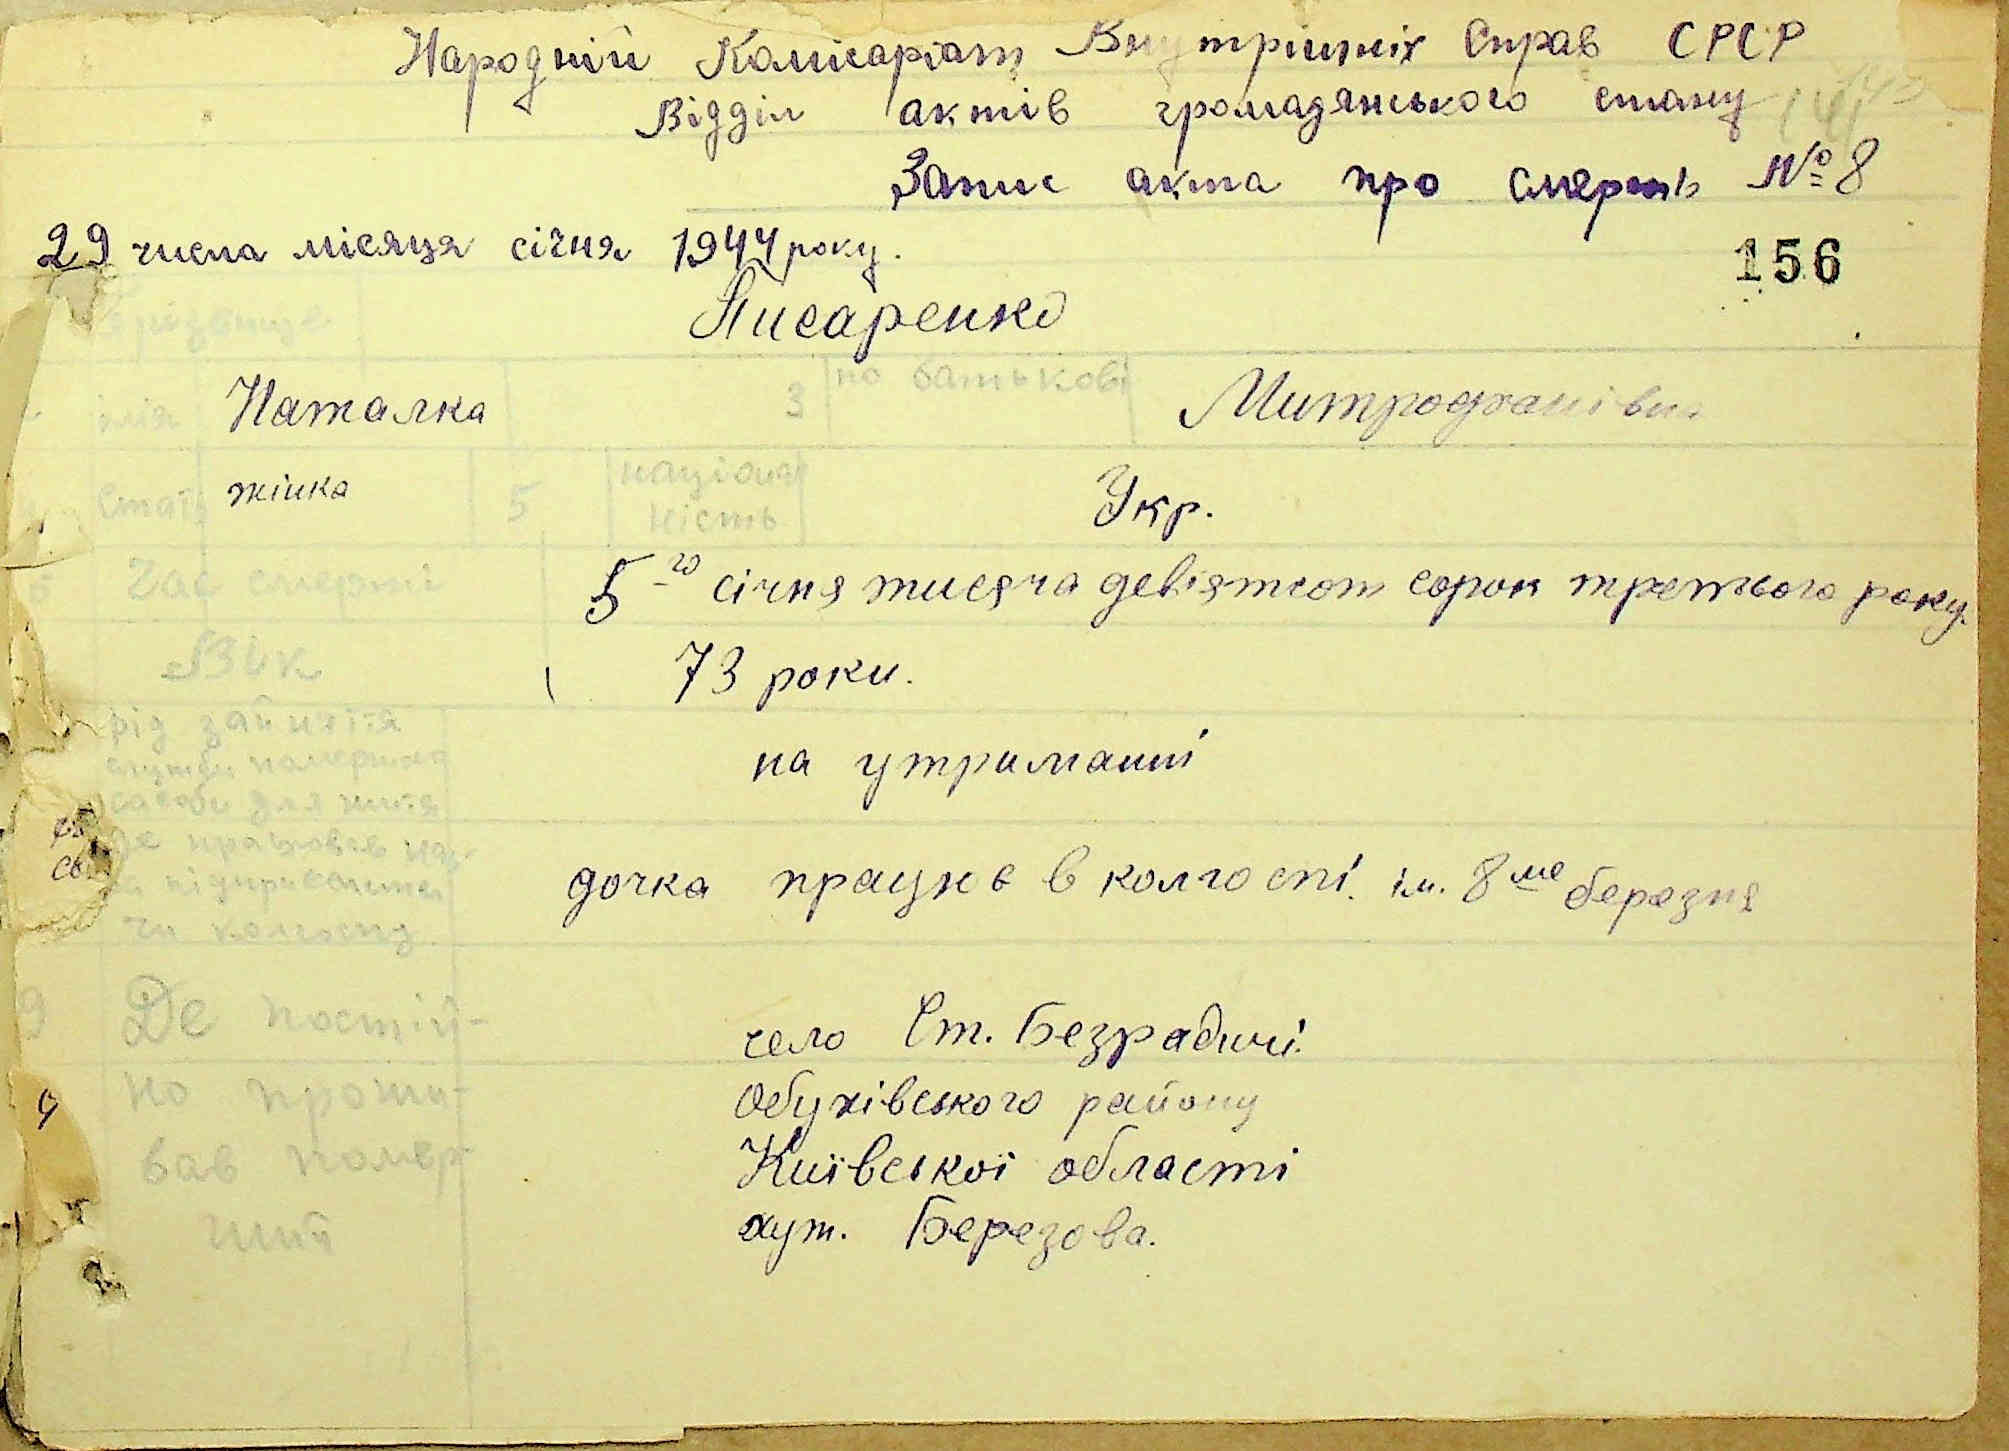 Народній Комісаріат Внутрішніх Справ СРСР
Відділ актів громадянського стану
Запис акта про смерть № 8
29 числа місяця січня 1944 року.
156
прізвище Писаренко
імія Наталка 3 по батькові Митрофанівна
Стать жінка 5 націона
ність Укр.
6 Час смерті 5-го січня тисяча девіятсот сорок третього року.
Вік 73 роки.
рід заняття
служби помершого
засоби для життя на утриманні
де працював наз-
ва підприємства дочка працює в колгоспі. ім. 8ме березня
чи колгоспу
9 Де постій- село Ст. Безрадичі.
но прожи- Обухівського району
вав помер- Київської області
ший хут. Березова.